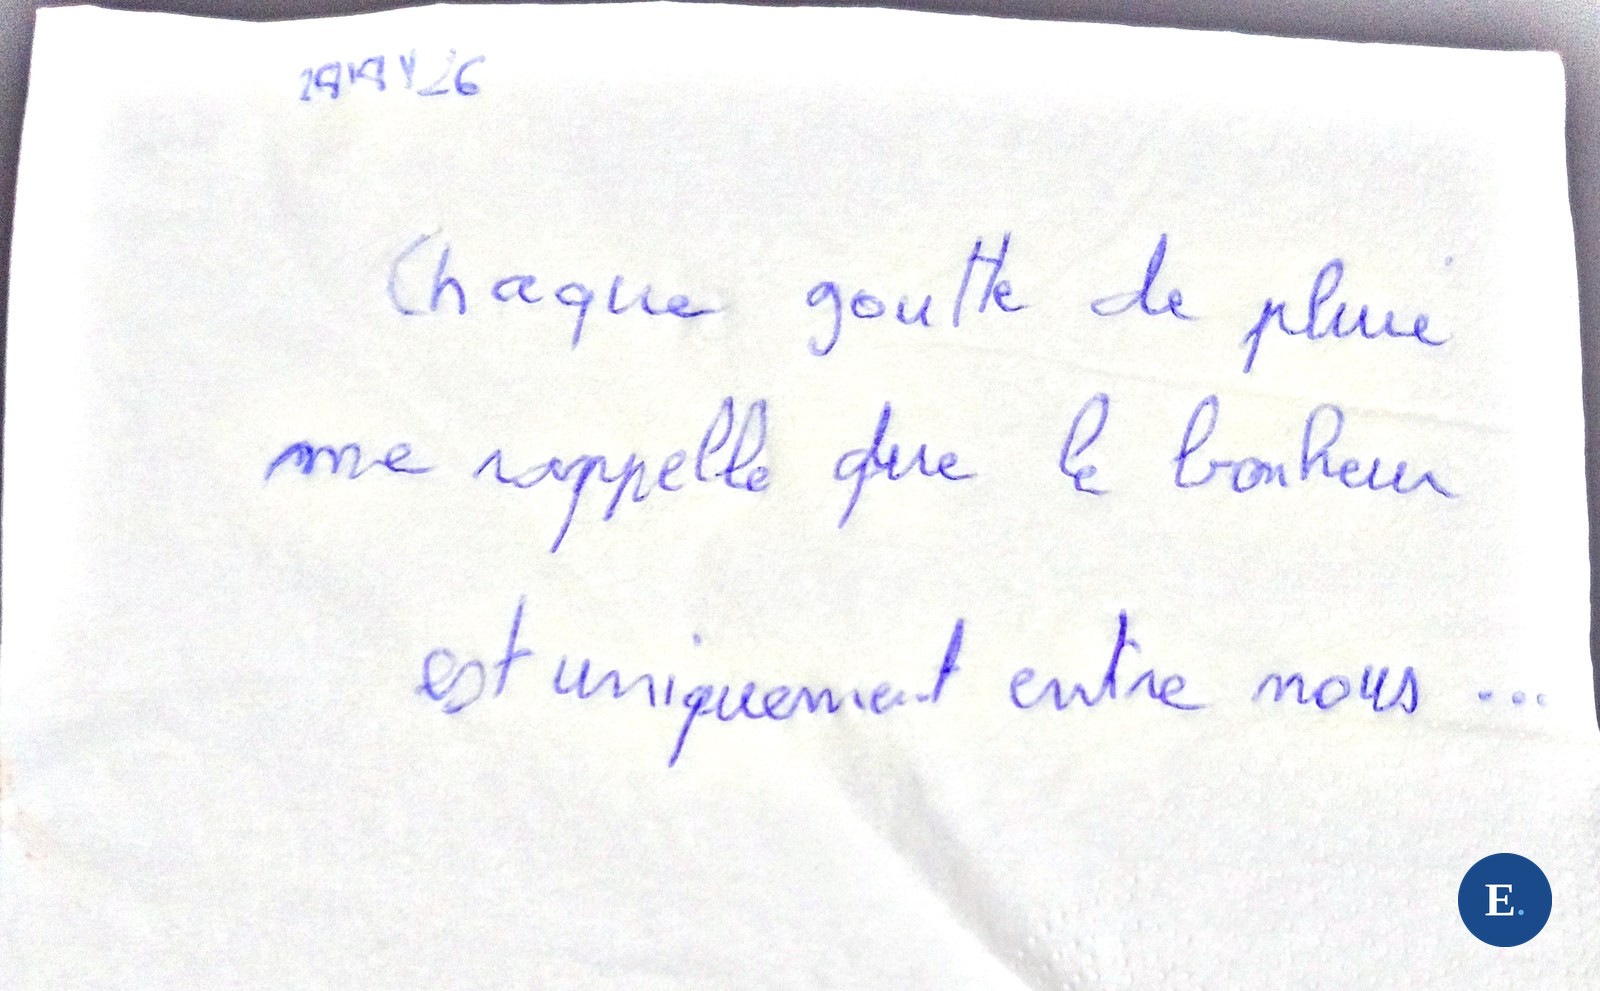 Chaque goutte de pluie
me rappelle que le bonheur
est uniquement entre nous ...
E.